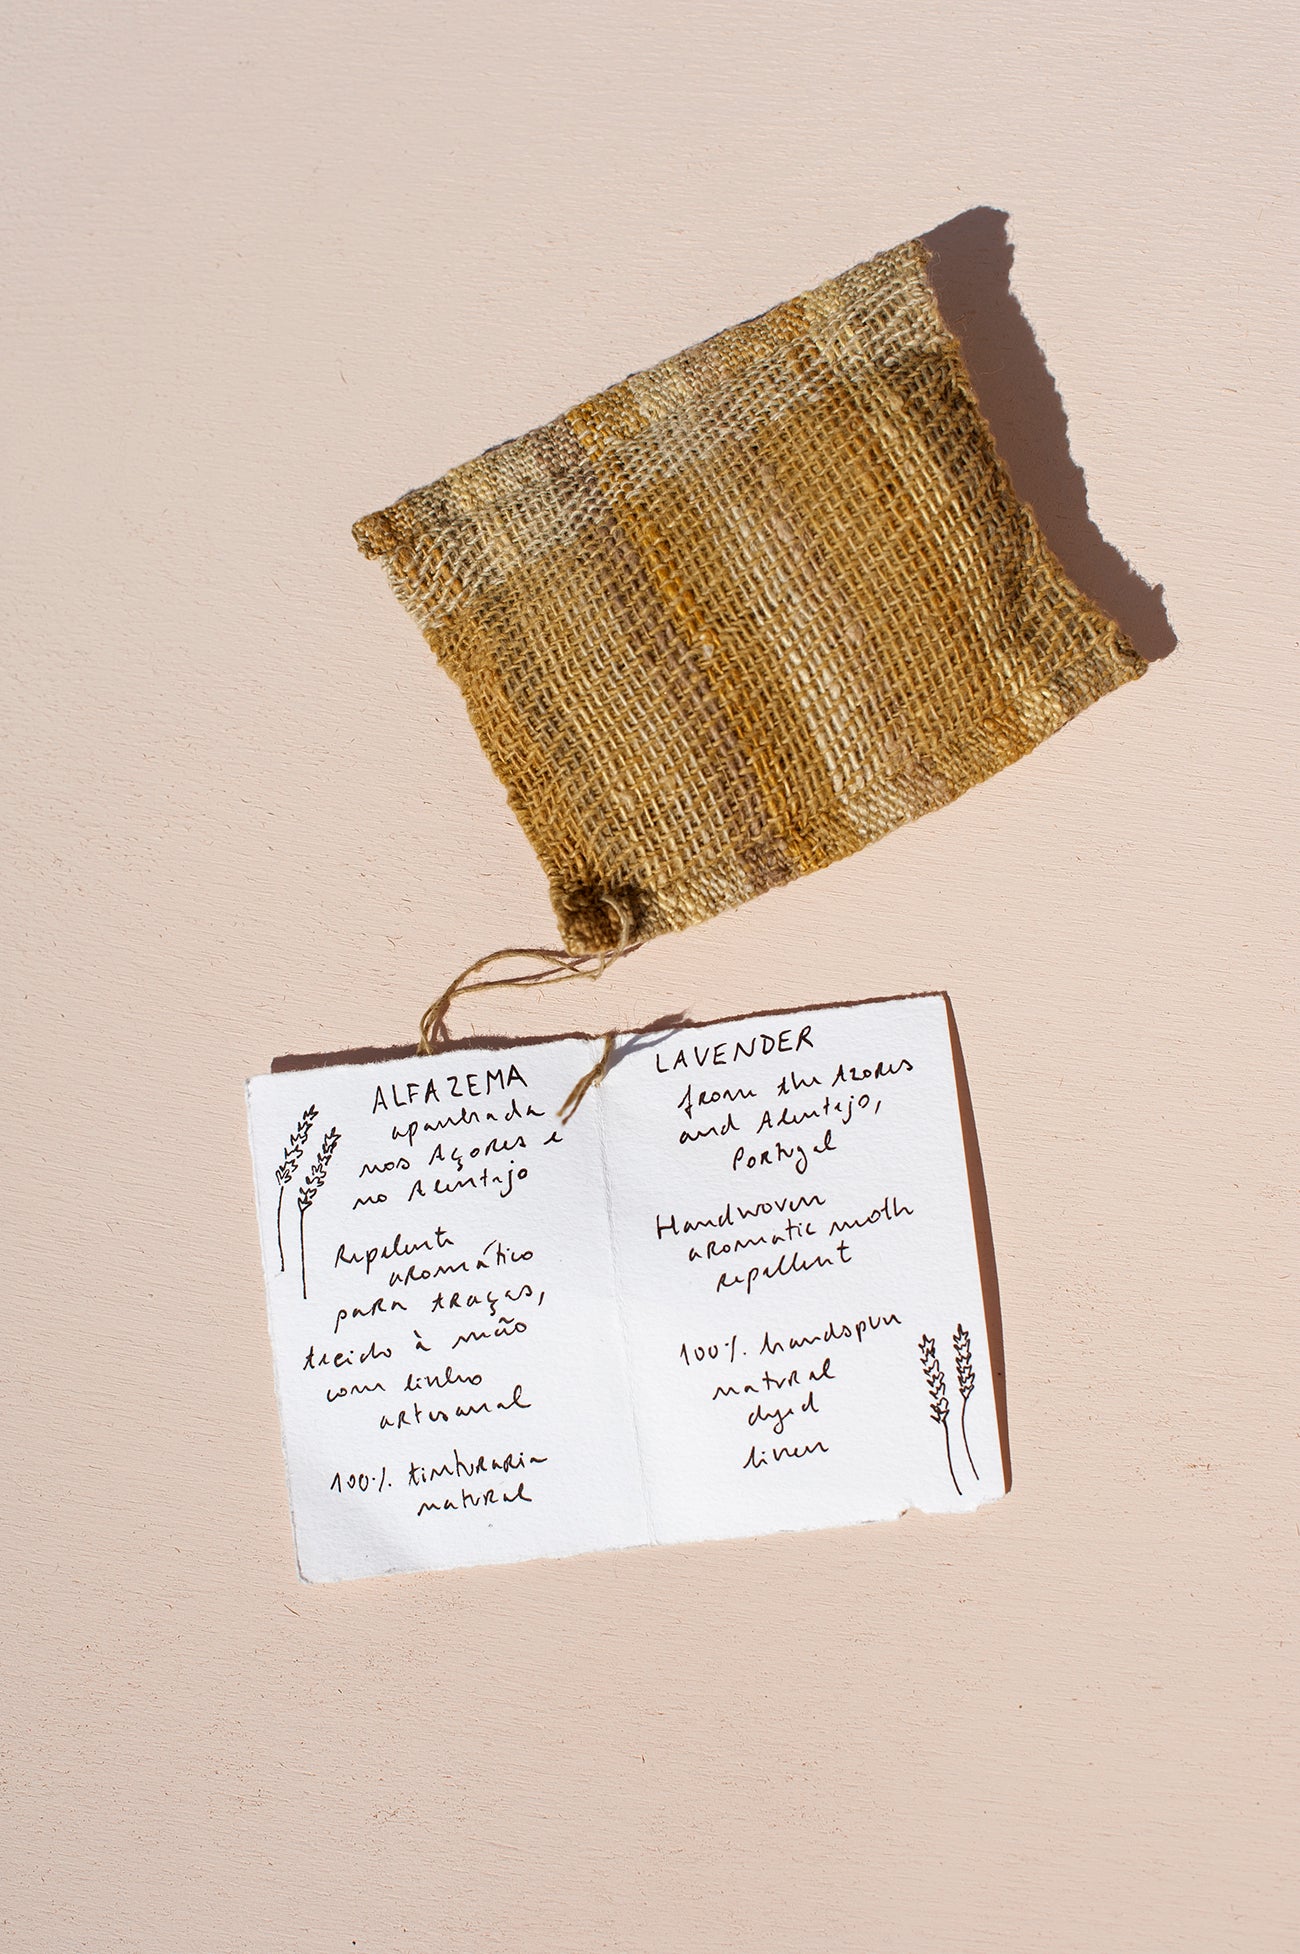 ALFAZEMA
apanhada
nos Açores e
no Alentejo
Repelente
aromático
para traças,
tecido à mão
com linho
artesanal
100% tinturaria
natural
LAVENDER
from the Azores
and Alentejo,
Portugal
Handwoven
aromatic moth
repellent
100% handspun
natural
dyed
linen